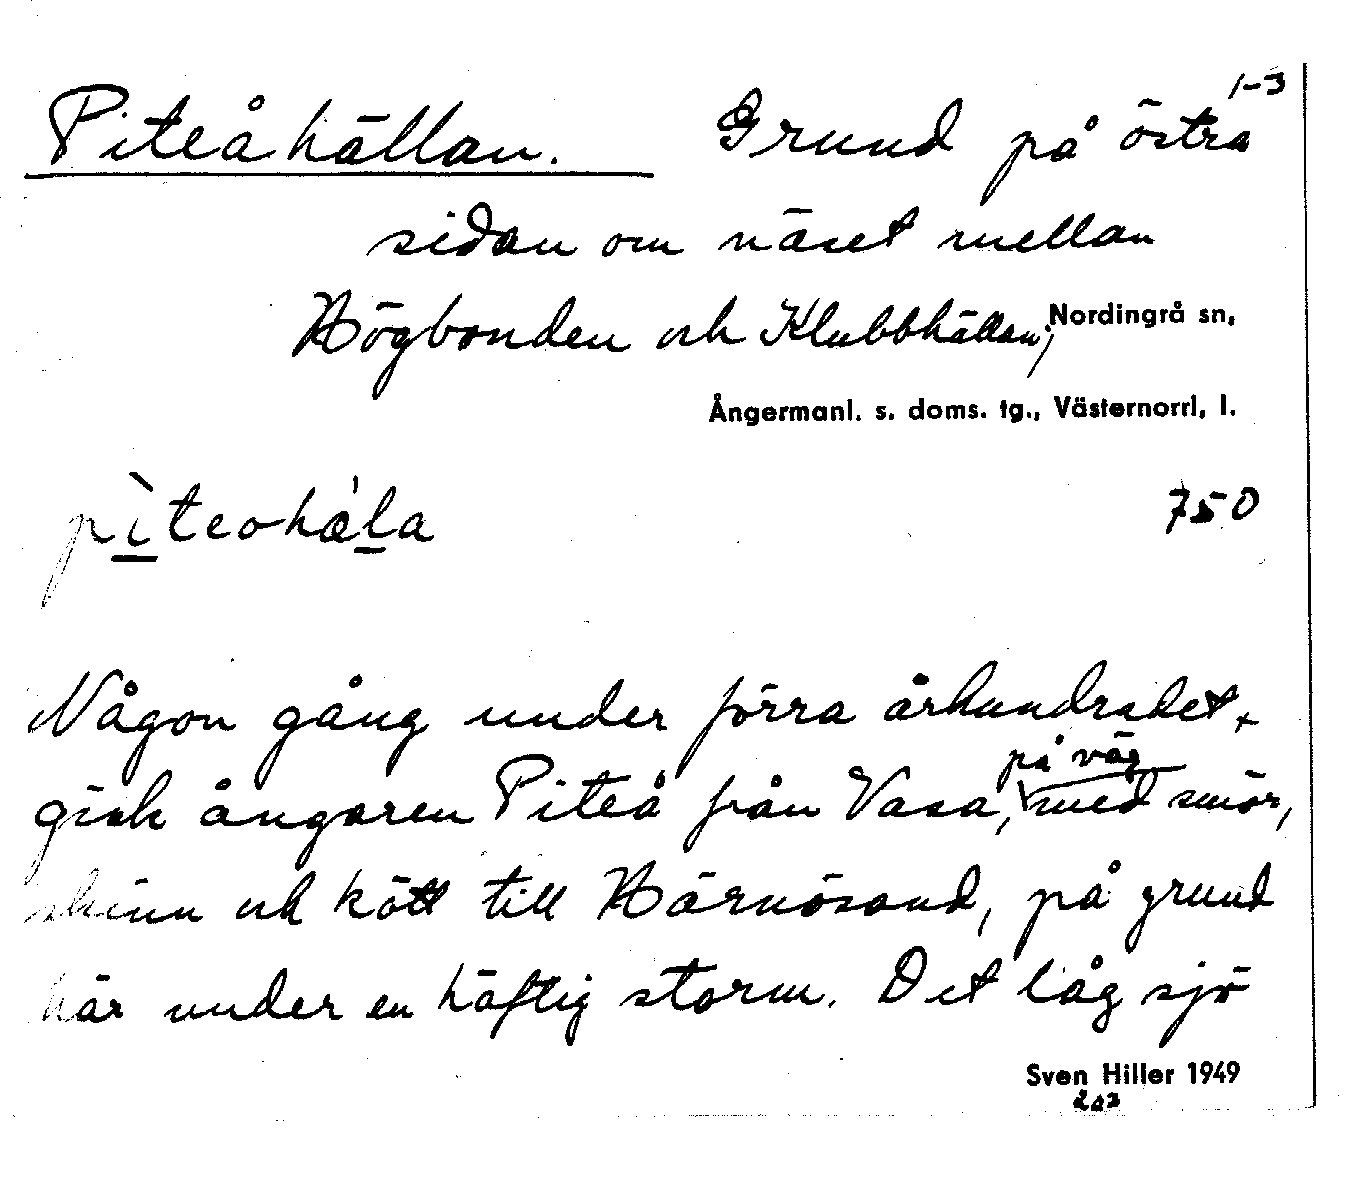 1-3
Piteåhällan. Grund på östra
sidan om näset mellan
Högbonden och Klubbhällan, Nordingrå sn,
Ångermanl. s. doms. tg., Västernorrl, l.
pìteohä́la 750
Någon gång under förra århundradet
gick ångaren Piteå från Vasa, på väg med smör,
skinn och kött till Härnösand, på grund
här under en häftig storm. Det låg sjö
Sven Hiller 1949